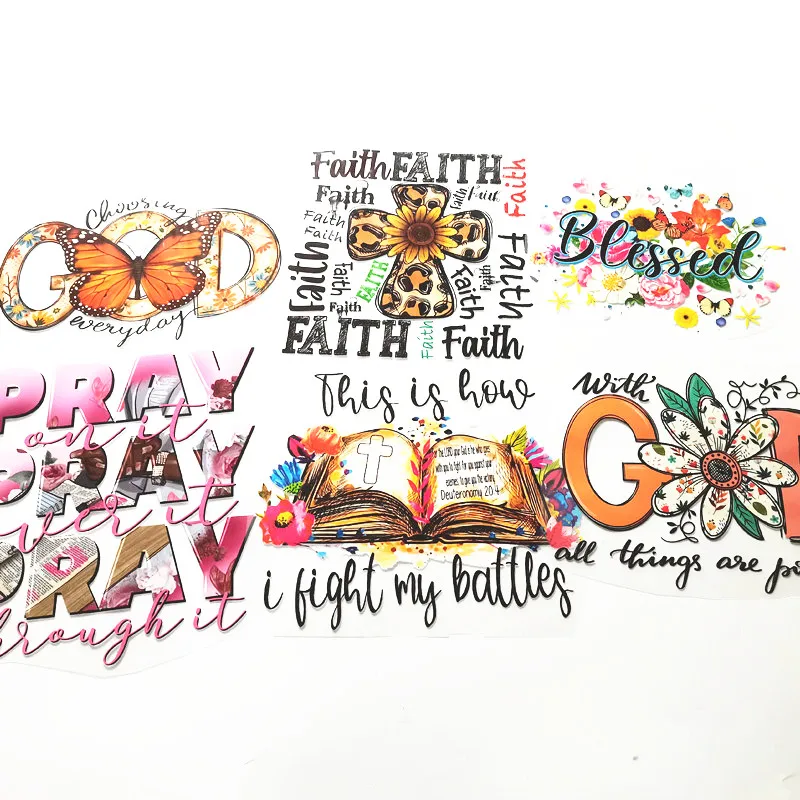 choosing
GOD
everyday
Faith FAITH
Faith
Faith
Faith
Faith
Faith
Faith
Faith
Faith
FAITH
Faith
Faith
Faith
Faith
Faith
FAITH
Faith
Faith
Blessed
PRAY
on it
PRAY
over it
PRAY
through it
This is how
for the LORD your God is he who goes
with you to fight for you against your
enemies, to give you the victory.
Deuteronomy 20:4
i fight my battles
With
GOD
all things are po